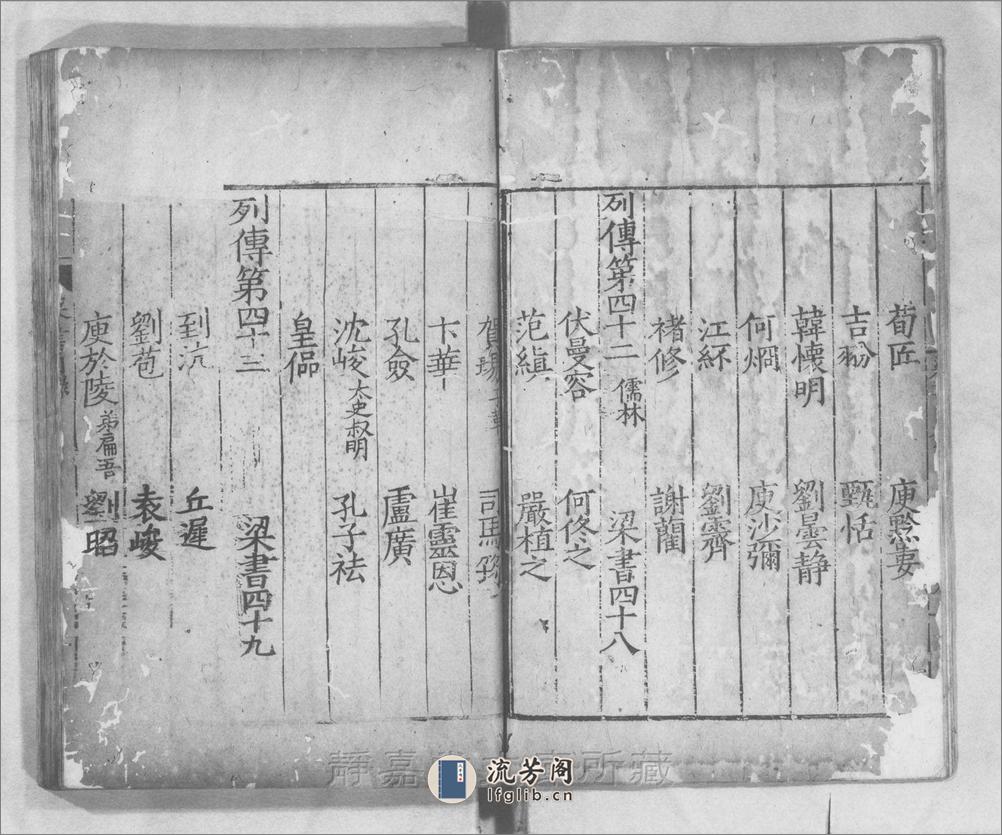 荀匠 庾黔婁
吉翂 甄恬
韓懷明 劉曇静
何烱 庾沙彌
江紑 劉霽
褚修 謝藺
列傳第四十二 儒林 梁書四十八
伏曼容 何佟之
范縝 嚴植之
賀瑒 司馬
卞華 崔靈恩
孔僉 盧廣
沈峻 太史叔明 孔子祛
皇偘
列傳第四十三 梁書四十九
到沆 丘遲
劉苞 袁峻
庾於陵 弟肩吾 劉昭
靜嘉 所藏
流芳阁
lfglib.cn